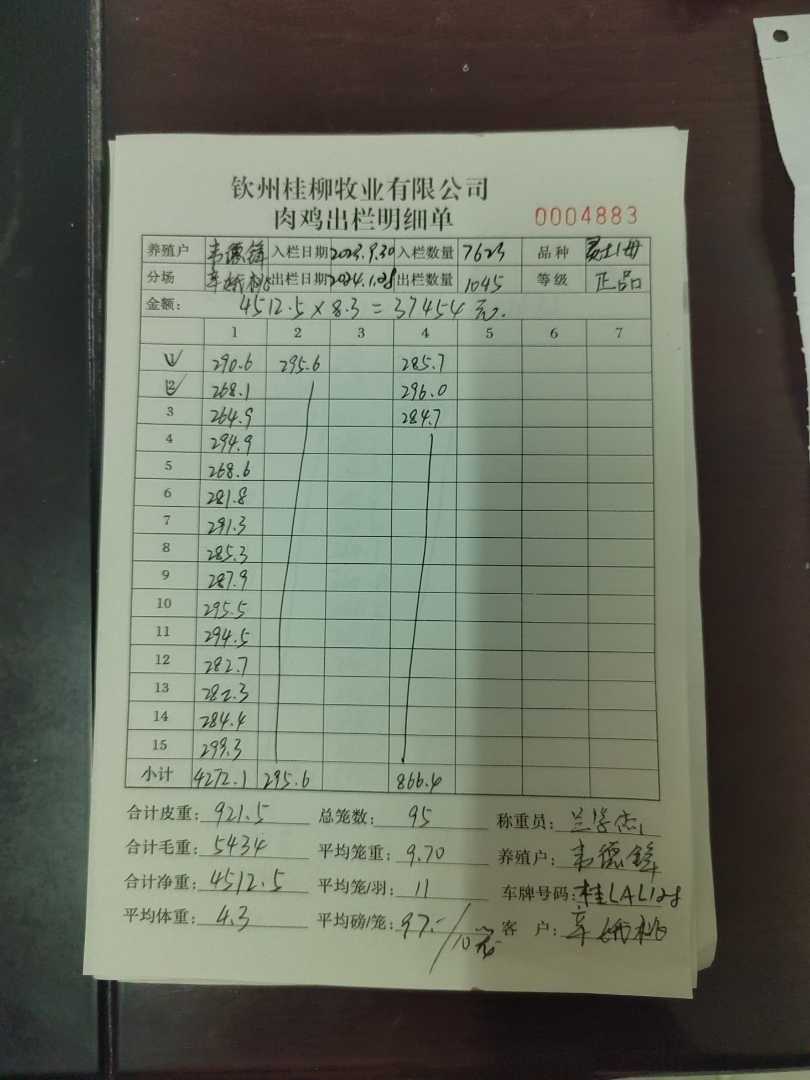 钦州桂柳牧业有限公司
肉鸡出栏明细单 0004883
养殖户 韦德锋 入栏日期 2023.9.30 入栏数量 7623 品种
分场 出栏日期 2024.1.28 出栏数量 1045 等级 正品
金额: 4512.5 × 8.3 = 37454 元.
1 2 3 4 5 6 7
1 290.6 295.6 285.7
2 268.1 296.0
3 264.9 284.7
4 294.9
5 268.6
6 281.8
7 291.3
8 285.3
9 287.9
10 295.5
11 294.5
12 282.7
13 282.3
14 284.4
15 299.3
小计 4272.1 295.6 866.4
合计皮重: 921.5 总笼数: 95 称重员:
合计毛重: 5434 平均笼重: 9.70 养殖户: 韦德锋
合计净重: 4512.5 平均笼/羽: 11 车牌号码: 桂LAL128
平均体重: 4.3 平均磅/笼: 97.-/10笼 客户: